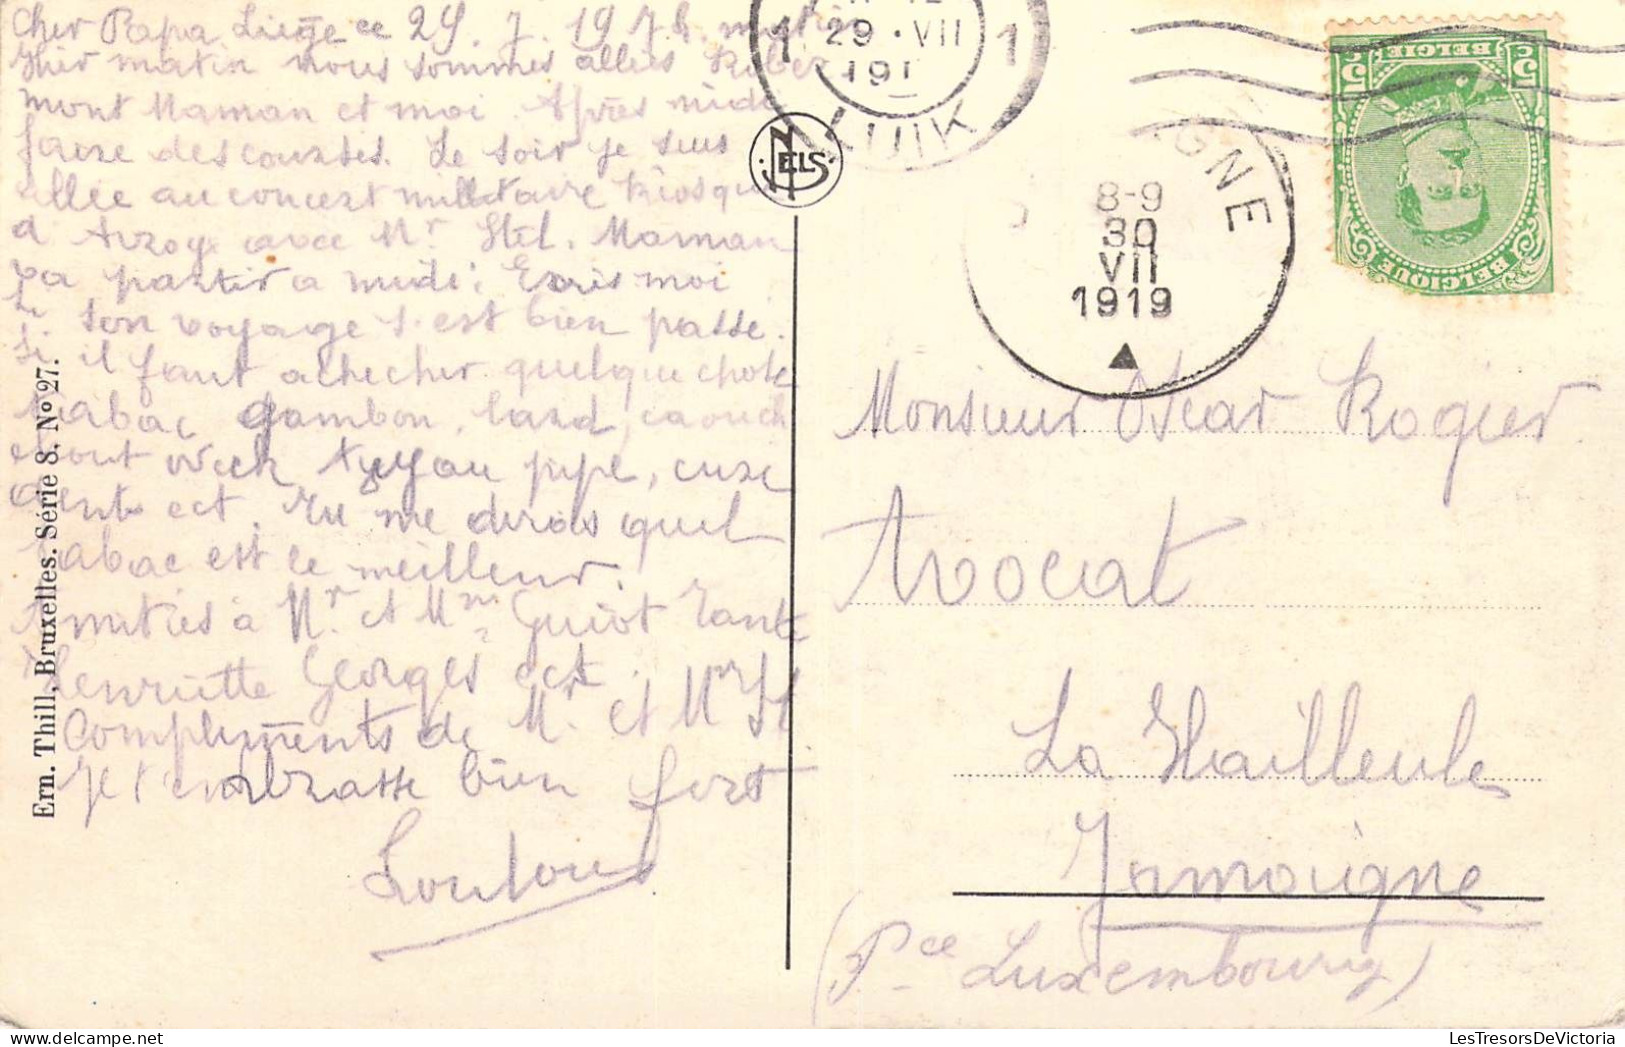 Cher Papa Liège ce 29. 7. 19 7 h. matin
Hier matin nous sommes allées Rober
mont Maman et moi. Après midi
faire des courses. Le soir je suis
allée au concert militaire kiosque
d'Avroy avec Mr Stel. Maman
va partir a midi. Ecris moi
si ton voyage s'est bien passé.
Si il faut achecher quelque chose
tabac jambon, lard, caouch
tuyau pipe, cure
dents ect. Tu me dirais quel
tabac est le meilleur.
Amitiés à Mr et Mme Guiot Tante
Henriette Georges ect.
Compliments de Mr et Mme St
Je t'embrasse bien fort
Loulou
Ern. Thill, Bruxelles. Série 8. No 27.
NELS
1 29 · VII 1
191
LUIK
IGNE
8-9
30
VII
1919
5c BELGIE 5c
BELGIQUE BELGIQUE
Monsieur Oscar Rogier
Avocat
La Hailleule
Jamoigne
(Pce Luxembourg)
LesTresorsDeVictoria